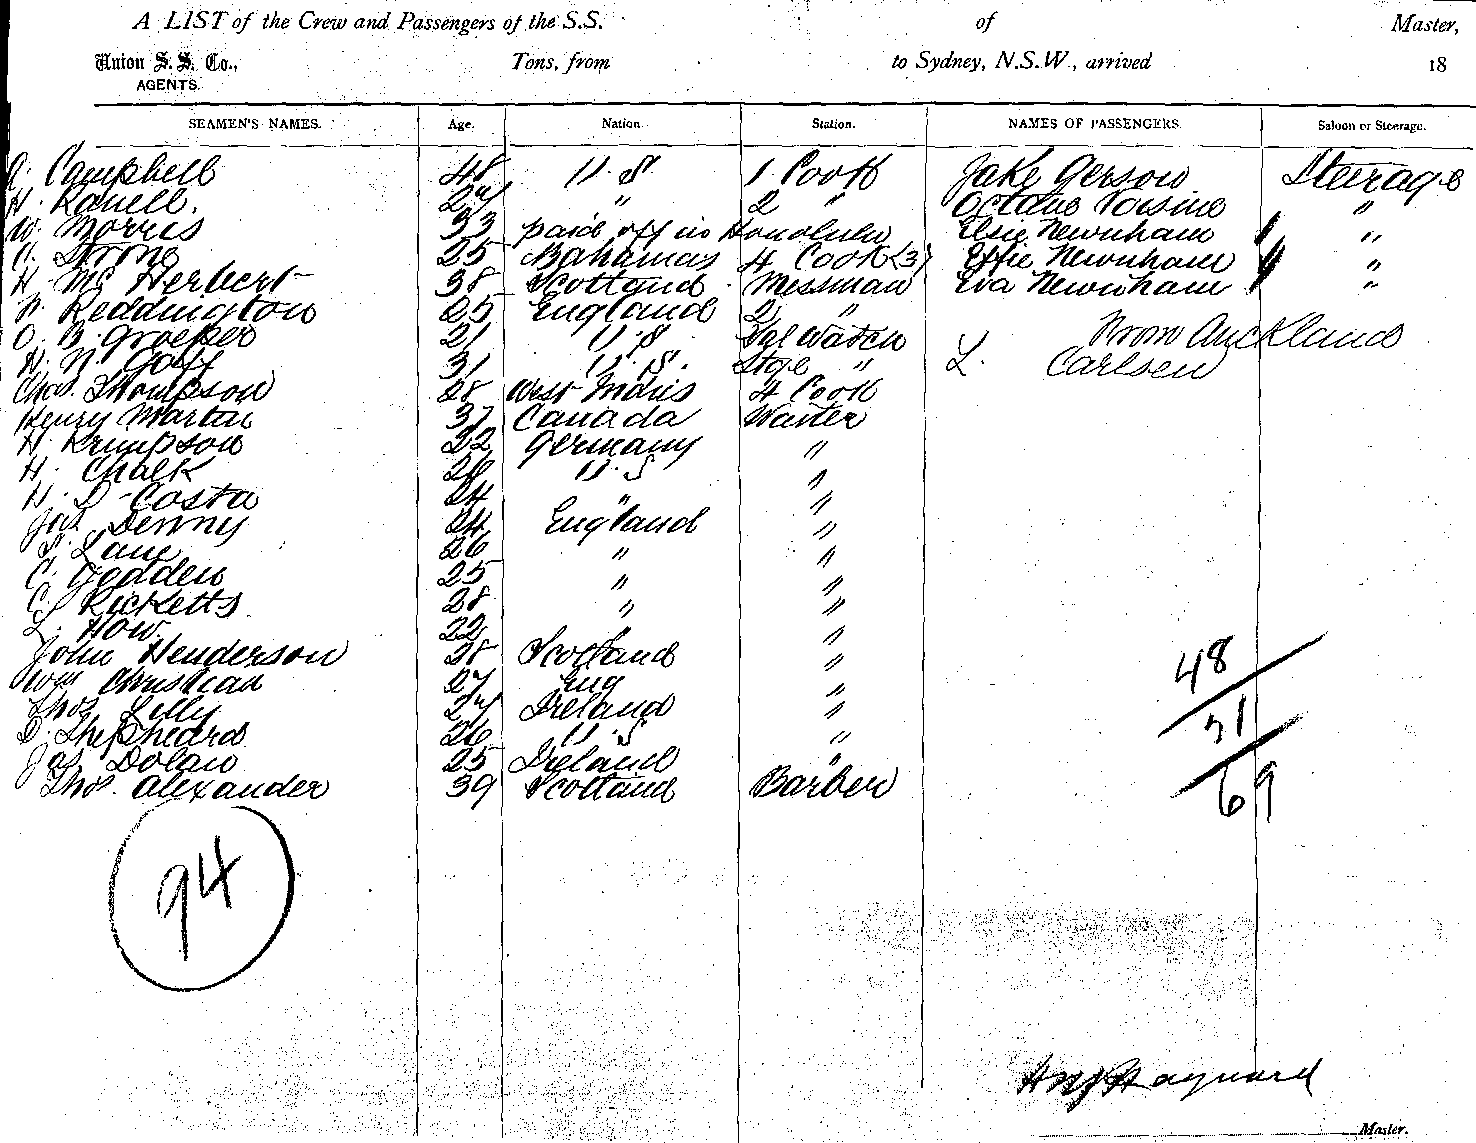 A LIST of the Crew and Passengers of the S.S. of Master,
Union S. S. Co., Tons, from to Sydney, N.S.W., arrived 18
AGENTS.
SEAMEN'S NAMES. Age. Nation. Station. NAMES OF PASSENGERS. Saloon or Steerage.
Campbell 48 U.S 1 Cook Jake Gersow Steerage
H. 24 " 2 " Octave Voisine "
W. Morris 33 paid off in Honolulu Elsie Newnham "
Strong 25 Bahamas 4 Cook (3) Effie Newnham "
H Mc Herbert 38 Scotland Messman Eva Newnham "
Reddington 25 England 2 "
O. B. Groeper 21 U.S Watch From Auckland
H. N. Goff 31 U.S. Stge " L. Carlsen
Chas. Thompson 28 West Indies 4 Cook
Henry Martin 37 Canada Waiter
H. Krumpson 22 Germany "
H. Chalk 28 U.S "
H. D-Costa 24 " "
Jas Denny 24 England "
Lane 26 " "
C. Ogdden 25 " "
C. Ricketts 28 " "
L. How. 22 " "
John Henderson 28 Scotland "
Wm Christian 27 Eng "
Thos Lilly 24 Ireland "
D. Shepheard 26 U.S "
Jas Dolan 25 Ireland "
Thos. Alexander 39 Scotland Barber
48
21
69
94
Hayward
Master.